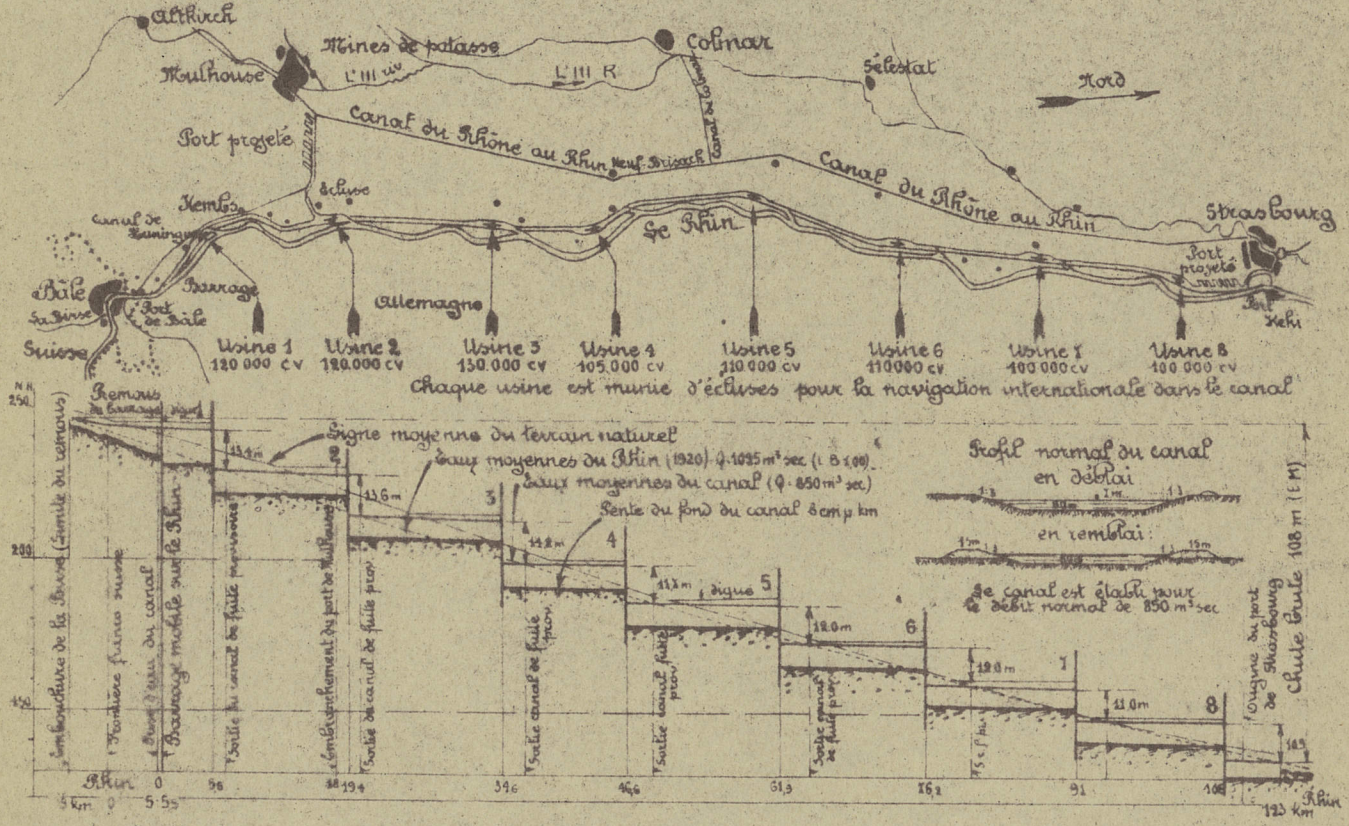 Altkirch
Mulhouse
Mines de potasse
L'Ill riv
L'Ill R
Colmar
Sélestat
Nord
Port projeté
Canal du Rhône au Rhin
Neuf-Brisach
Canal de Colmar
Canal du Rhône au Rhin
Strasbourg
Kembs
Ecluse
Canal de
Huningue
Le Rhin
Port
projeté
Bâle
La Birse
Port
de Bâle
Barrage
Allemagne
Port
Kehl
Suisse
Usine 1
120 000 cv
Usine 2
120.000 cv
Usine 3
130.000 cv
Usine 4
105.000 cv
Usine 5
110.000 cv
Usine 6
110000 cv
Usine 7
100 000 cv
Usine 8
100 000 cv
Chaque usine est munie d'écluses pour la navigation internationale dans le canal
N.N.
250
200
Remous
du barrage
digue
Ligne moyenne du terrain naturel
Eaux moyennes du Rhin (1920) Q.1095 m³ sec
Eaux moyennes du canal (Q. 850 m³ sec)
Pente du fond du canal 8 cm p km
Profil normal du canal
en déblai
en remblai:
Le canal est établi pour
le débit normal de 850 m³ sec
Chute brute 108 m
13,4 m
13,6 m
3
4
5
digue
12.0 m
6
12.0 m
7
11.0 m
8
Embouchure de la Birse (Limite du remous)
Frontière franco suisse
Prise d'eau du canal
Barrage mobile sur le Rhin
Sortie du canal de fuite provisoire
Embranchement du port de Mulhouse
Sortie du canal de fuite prov.
Sortie canal de fuite
prov
Sortie canal fuite
prov
Sortie canal
de fuite prov
Origine du port
de Strasbourg
Rhin
0
19 4
34,6
46,6
61,3
76,2
91
106
Rhin
123 km
5 km
0
5.55